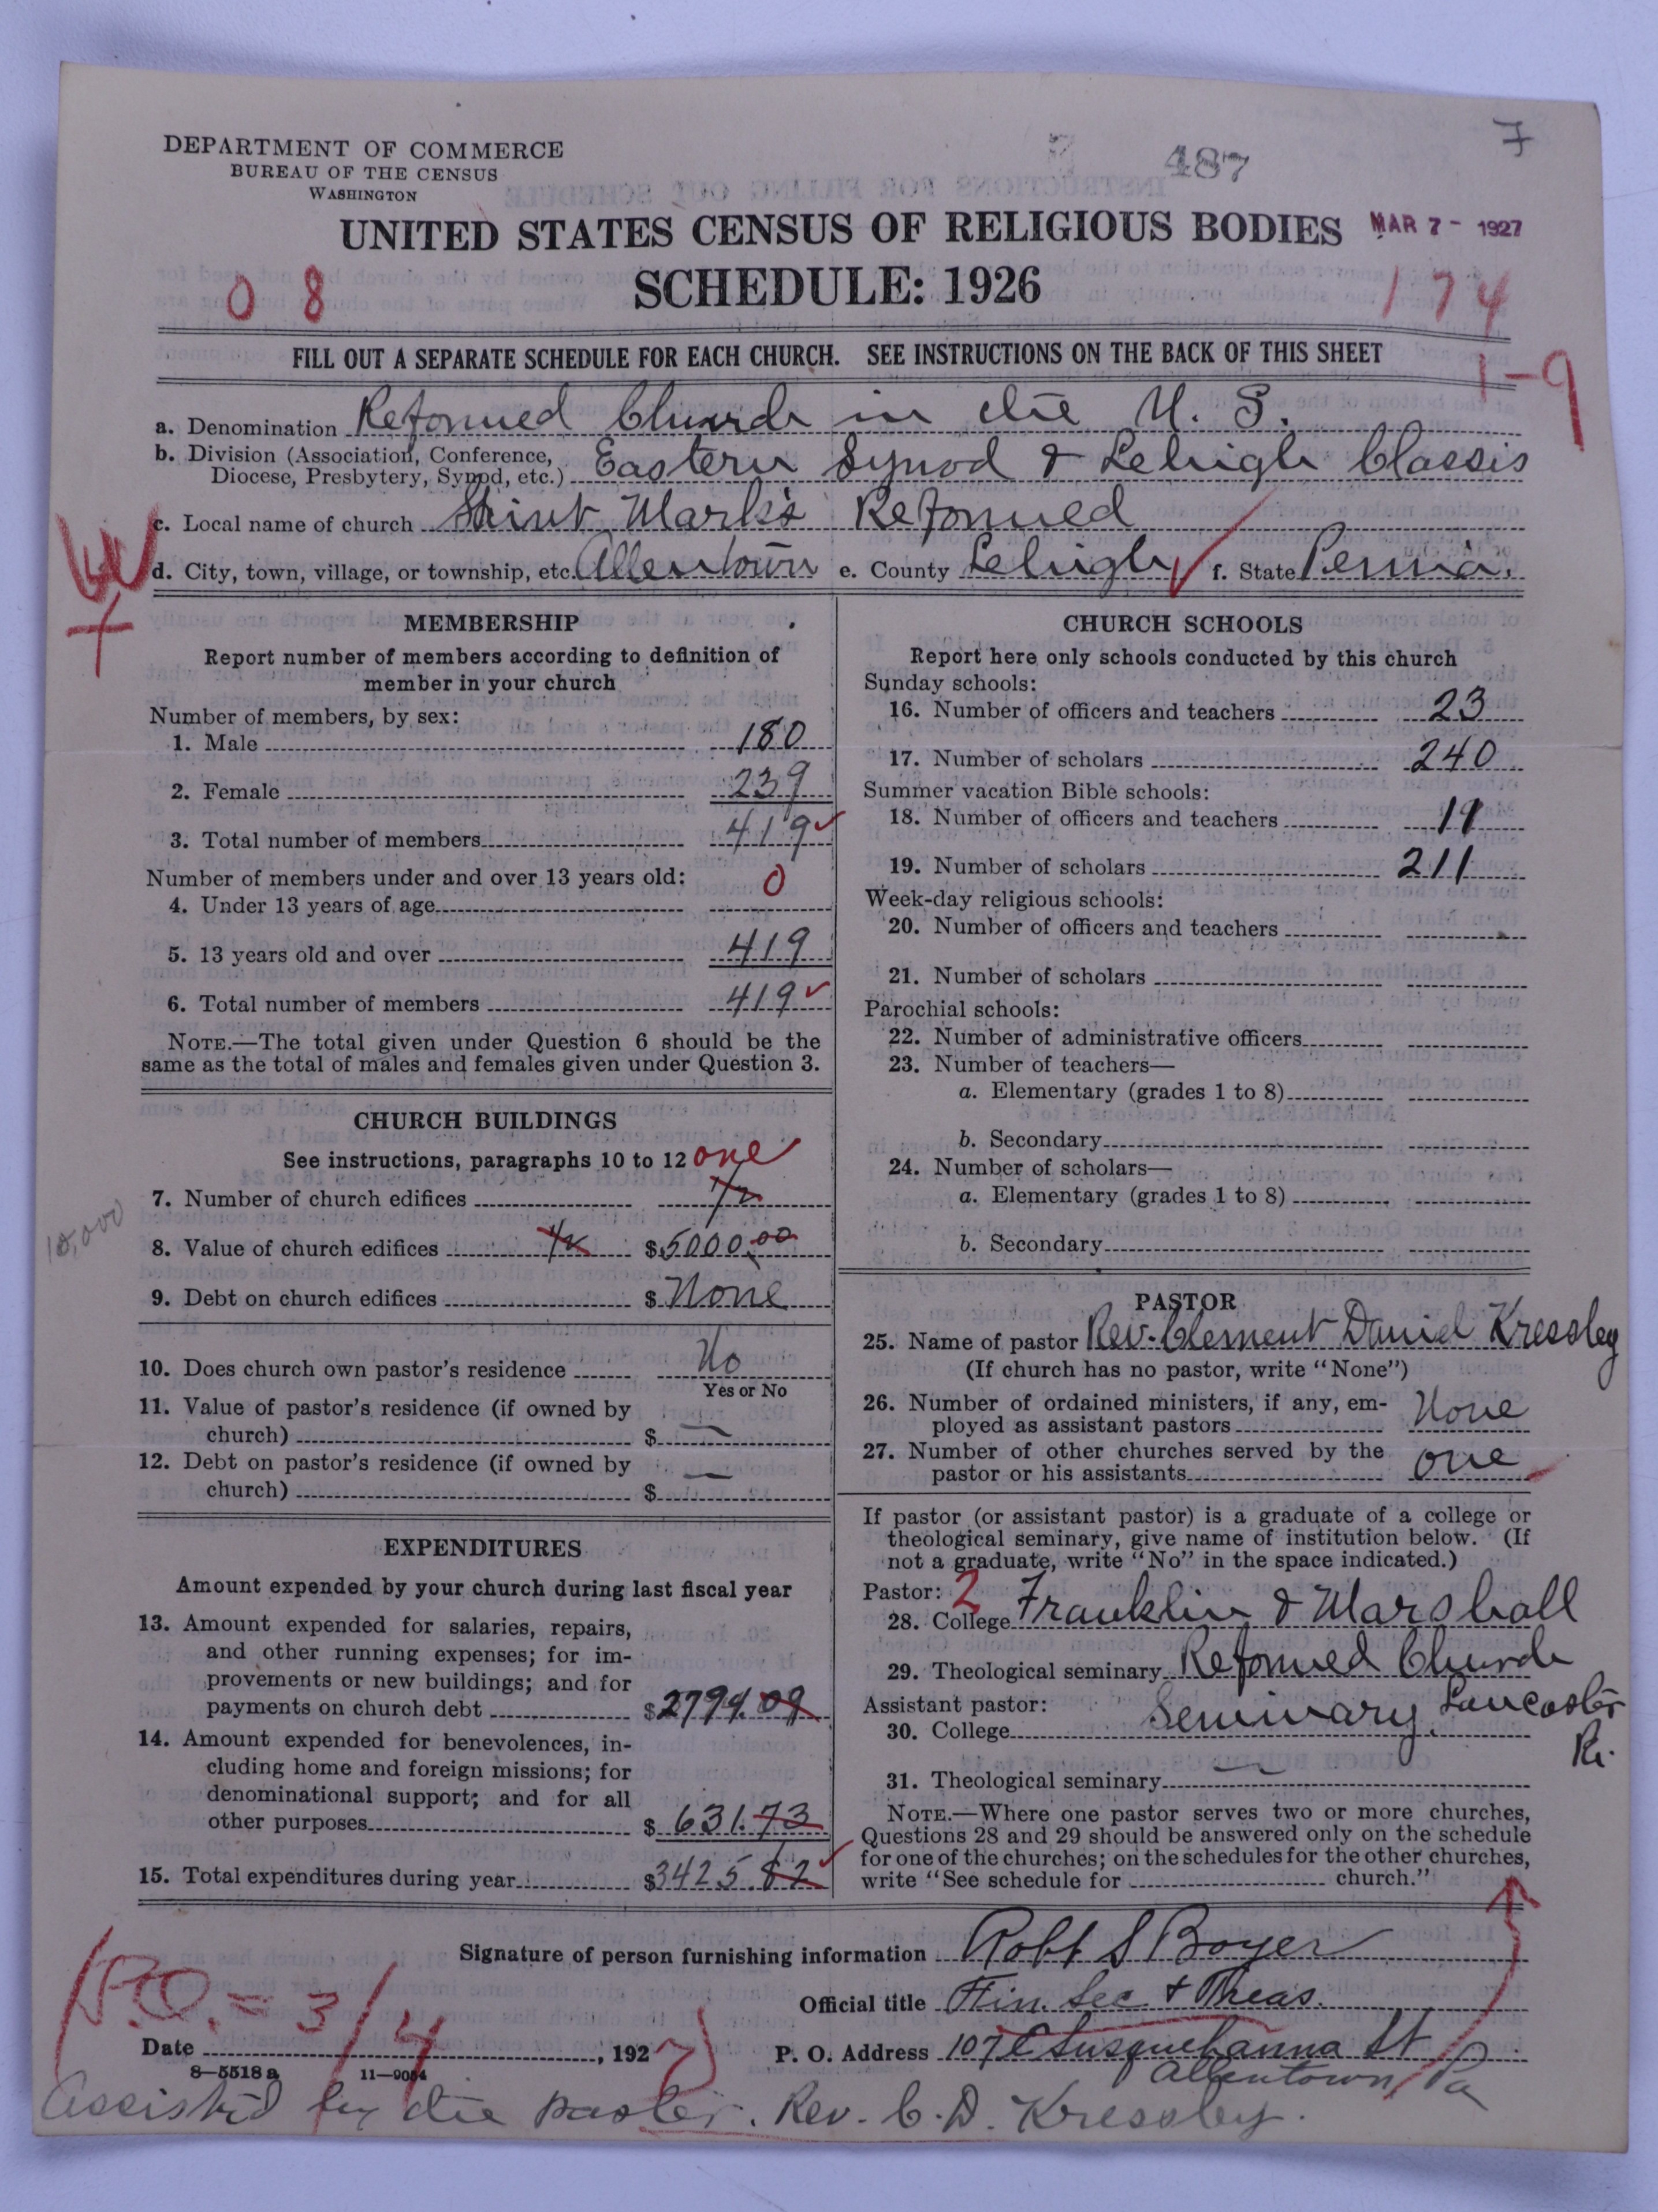 7
487
DEPARTMENT OF COMMERCE
BUREAU OF THE CENSUS
WASHINGTON
UNITED STATES CENSUS OF RELIGIOUS BODIES MAR 7 - 1927
0 8 SCHEDULE: 1926 174
FILL OUT A SEPARATE SCHEDULE FOR EACH CHURCH. SEE INSTRUCTIONS ON THE BACK OF THIS SHEET
1-9
a. Denomination Reformed Church in the U. S.
b. Division (Association, Conference, Diocese, Presbytery, Synod, etc.) Eastern Synod & Lehigh Classis
c. Local name of church Saint Mark's Reformed
d. City, town, village, or township, etc. Allentown e. County Lehigh f. State Penn'a.
MEMBERSHIP
Report number of members according to definition of
member in your church
Number of members, by sex:
1. Male 180
2. Female 239
3. Total number of members 419
Number of members under and over 13 years old:
4. Under 13 years of age 0
5. 13 years old and over 419
6. Total number of members 419
NOTE.—The total given under Question 6 should be the
same as the total of males and females given under Question 3.
CHURCH BUILDINGS
See instructions, paragraphs 10 to 12 one
7. Number of church edifices 1/2
10,000
8. Value of church edifices 1/2 $5000.00
9. Debt on church edifices $ None
10. Does church own pastor's residence No
Yes or No
11. Value of pastor's residence (if owned by
church) $ —
12. Debt on pastor's residence (if owned by
church) $ —
EXPENDITURES
Amount expended by your church during last fiscal year
13. Amount expended for salaries, repairs,
and other running expenses; for im-
provements or new buildings; and for
payments on church debt $2794.09
14. Amount expended for benevolences, in-
cluding home and foreign missions; for
denominational support; and for all
other purposes $631.73
15. Total expenditures during year $3425.82
CHURCH SCHOOLS
Report here only schools conducted by this church
Sunday schools:
16. Number of officers and teachers 23
17. Number of scholars 240
Summer vacation Bible schools:
18. Number of officers and teachers 19
19. Number of scholars 211
Week-day religious schools:
20. Number of officers and teachers
21. Number of scholars
Parochial schools:
22. Number of administrative officers
23. Number of teachers—
a. Elementary (grades 1 to 8)
b. Secondary
24. Number of scholars—
a. Elementary (grades 1 to 8)
b. Secondary
PASTOR
25. Name of pastor Rev. Clement Daniel Kressley
(If church has no pastor, write "None")
26. Number of ordained ministers, if any, em-
ployed as assistant pastors None
27. Number of other churches served by the
pastor or his assistants one
If pastor (or assistant pastor) is a graduate of a college or
theological seminary, give name of institution below. (If
not a graduate, write "No" in the space indicated.)
Pastor: 2
28. College Franklin & Marshall
29. Theological seminary Reformed Church
Assistant pastor: Seminary, Lancaster
30. College Pa.
31. Theological seminary —
NOTE.—Where one pastor serves two or more churches,
Questions 28 and 29 should be answered only on the schedule
for one of the churches; on the schedules for the other churches,
write "See schedule for church."
Signature of person furnishing information Robt S Boyer
Official title Fin. Sec & Treas.
(P.O. = 3/4
Date , 1927) P. O. Address 107 E Susquehanna St
8-5518 a 11-9054 Allentown, Pa
Assisted by the pastor. Rev. C. D. Kressley.